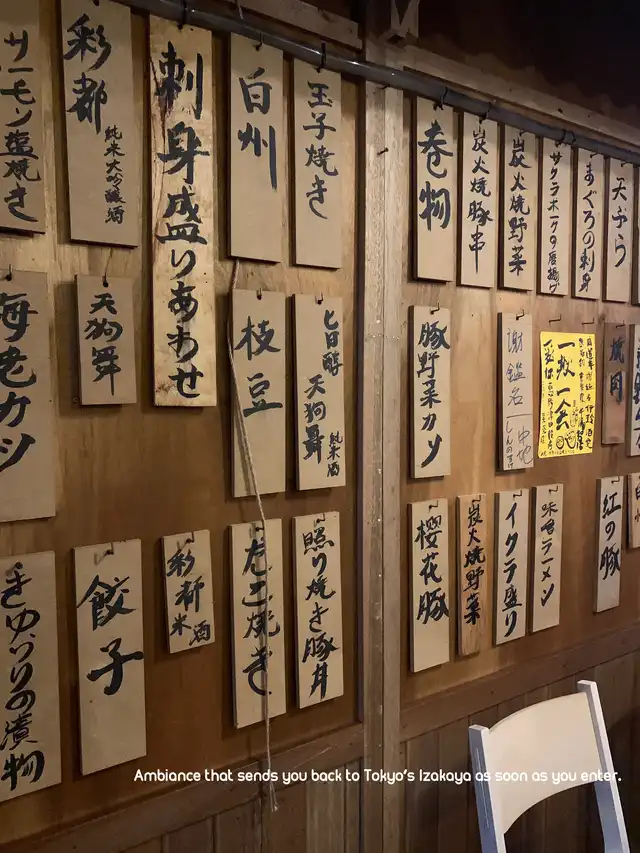 サーモン塩焼き
彩都
純米大吟醸酒
刺身盛りあわせ
白州
玉子焼き
巻物
炭火焼豚串
炭火焼野菜
サクラポークの唐揚げ
まぐろの刺身
天ぷら
海老カツ
天狗舞
枝豆
旨醇
天狗舞
純米酒
豚野菜カツ
一枚一会
焼肉
きゅうりの漬物
餃子
彩都
米酒
たこ焼き
照り焼き豚丼
櫻花豚
炭火焼野菜
イクラ盛り
味噌ラーメン
紅の豚
Ambiance that sends you back to Tokyo's Izakaya as soon as you enter.